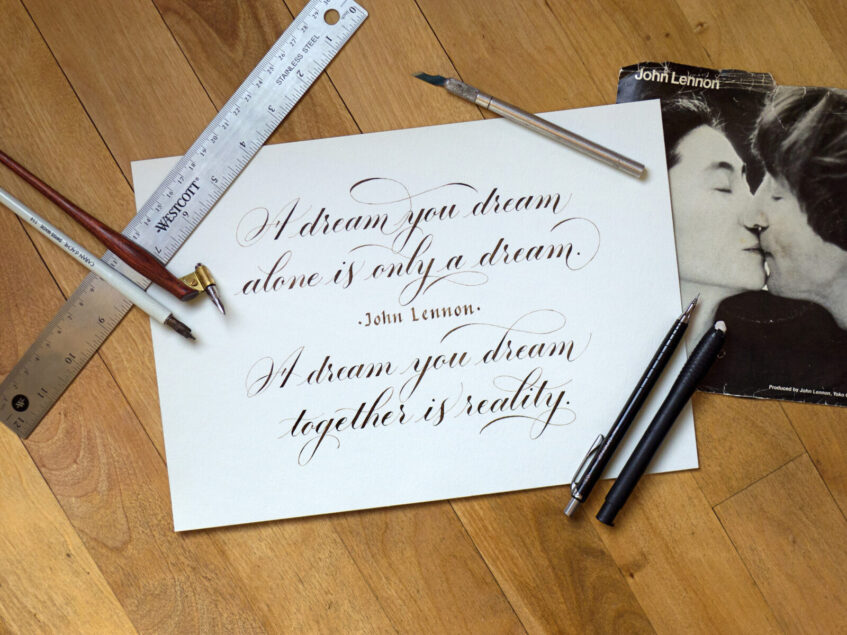 A dream you dream
alone is only a dream.
·John Lennon·
A dream you dream
together is reality.
John Lennon
Produced by John Lennon, Yoko
WESTCOTT
STAINLESS STEEL
1
2
3
4
5
6
7
9
10
11
12